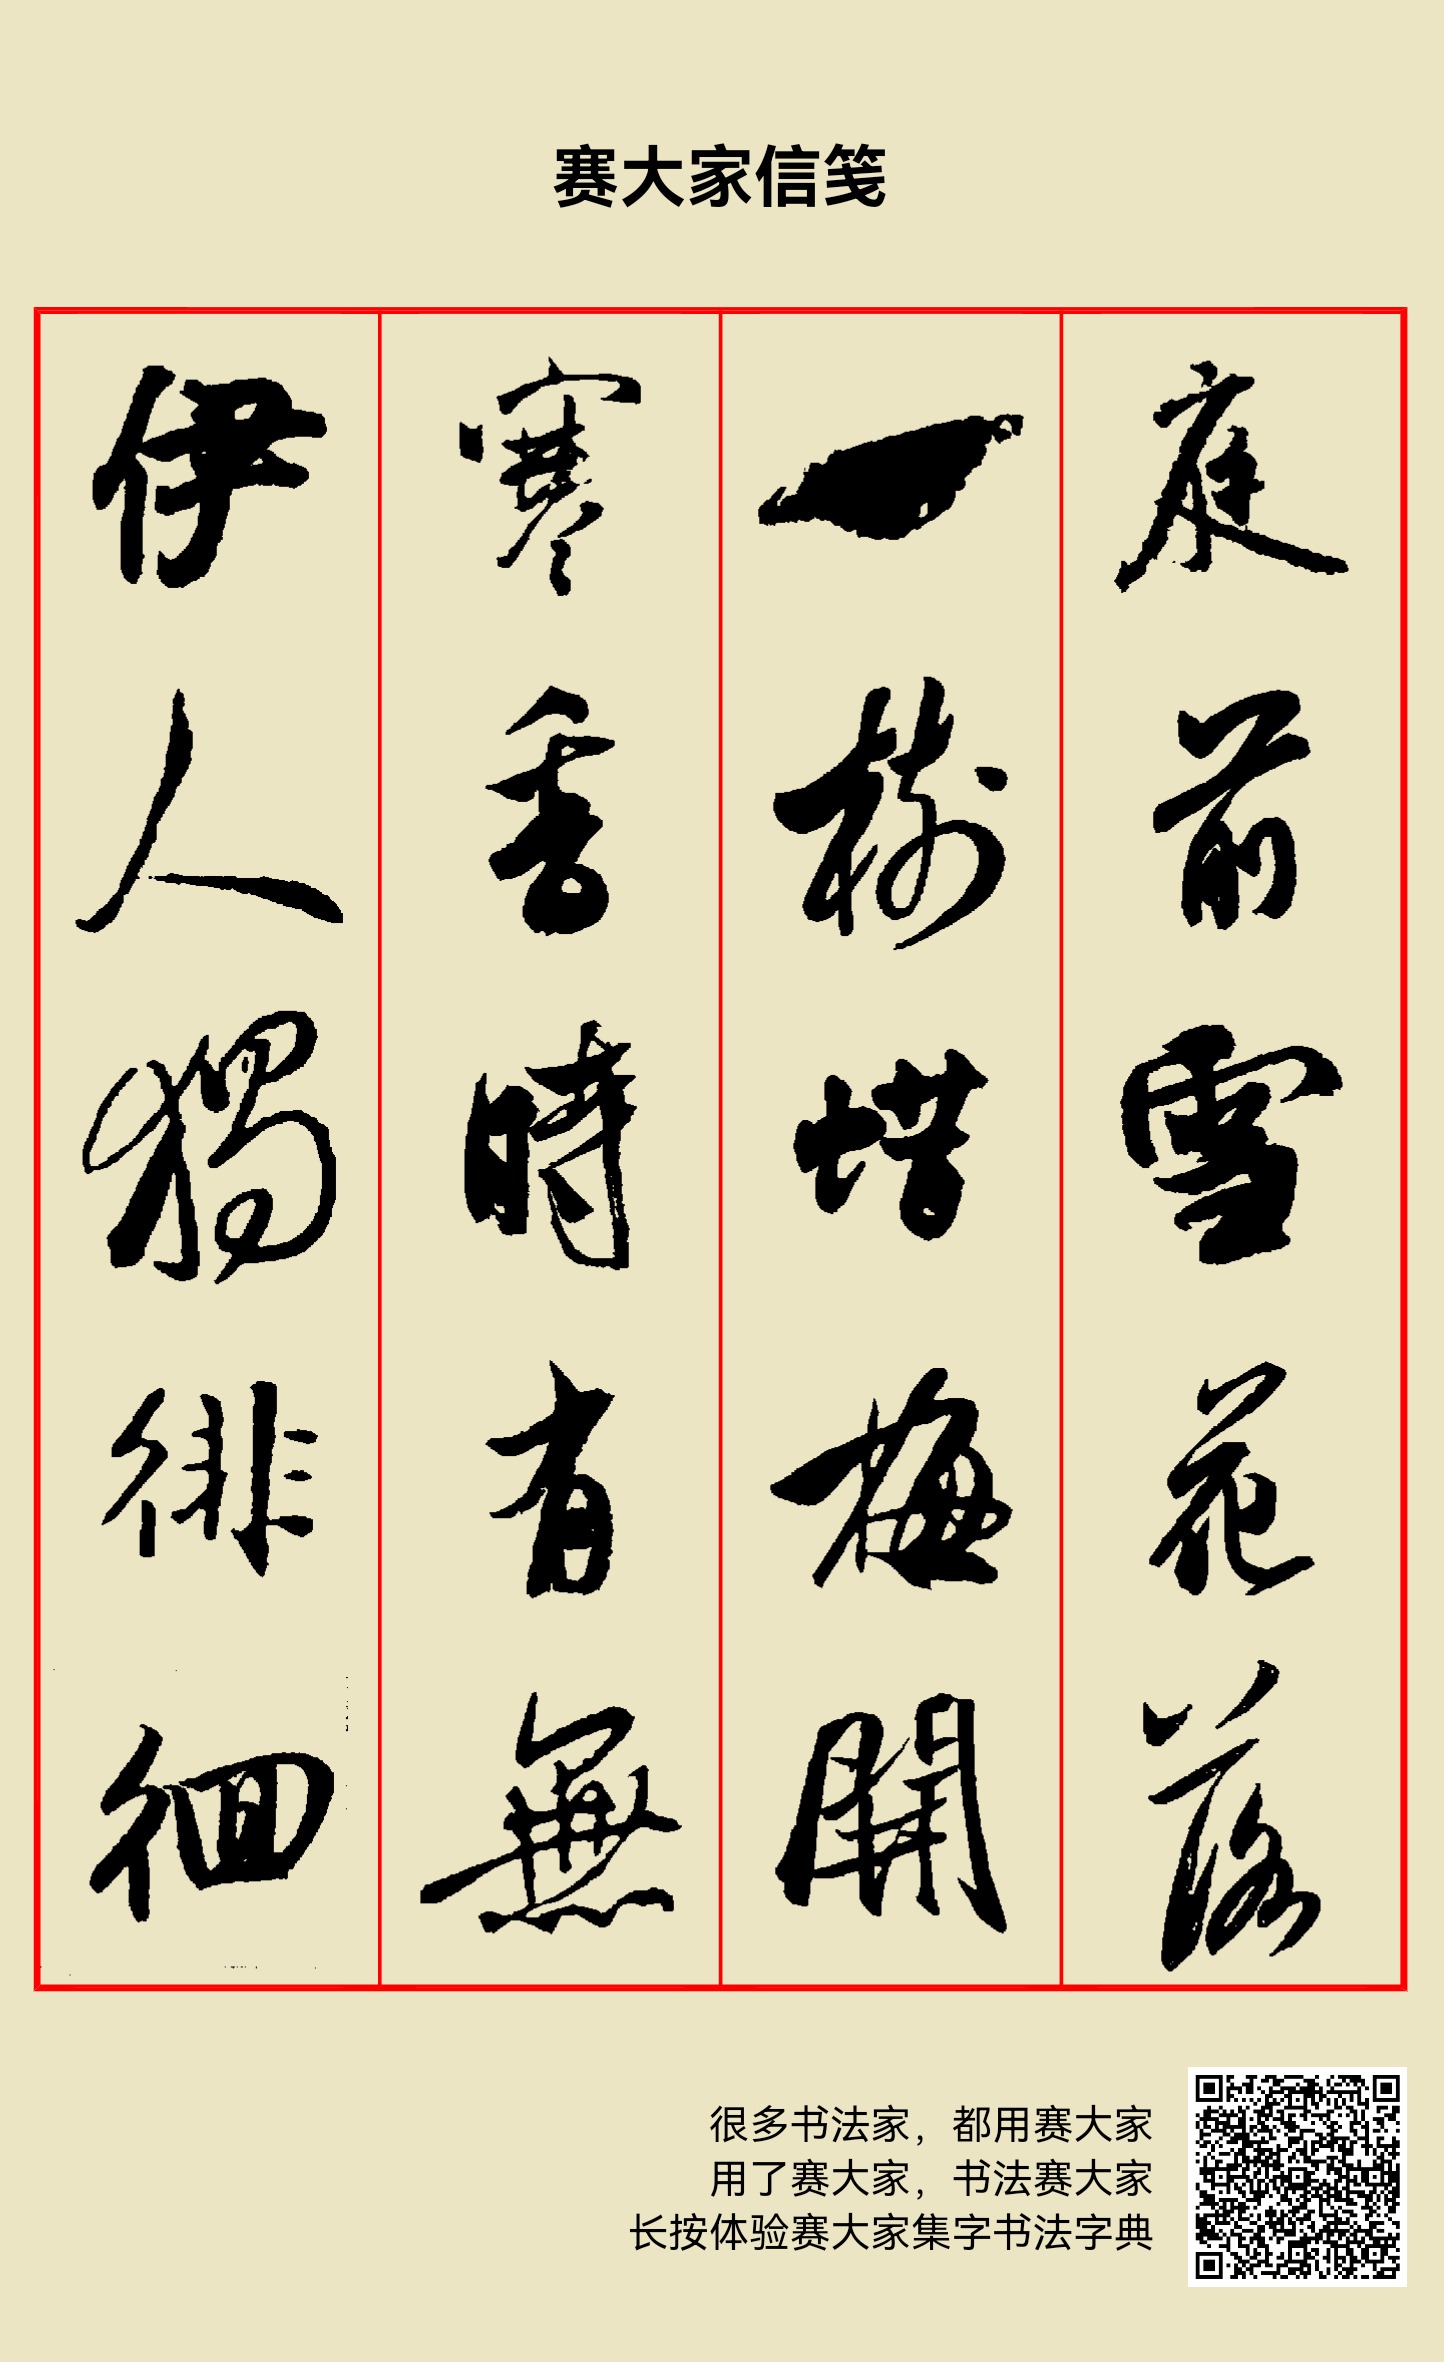 赛大家信笺
庭前雪花落
一樹蜡梅開
寒香時有無
伊人獨徘徊
很多书法家，都用赛大家
用了赛大家，书法赛大家
长按体验赛大家集字书法字典